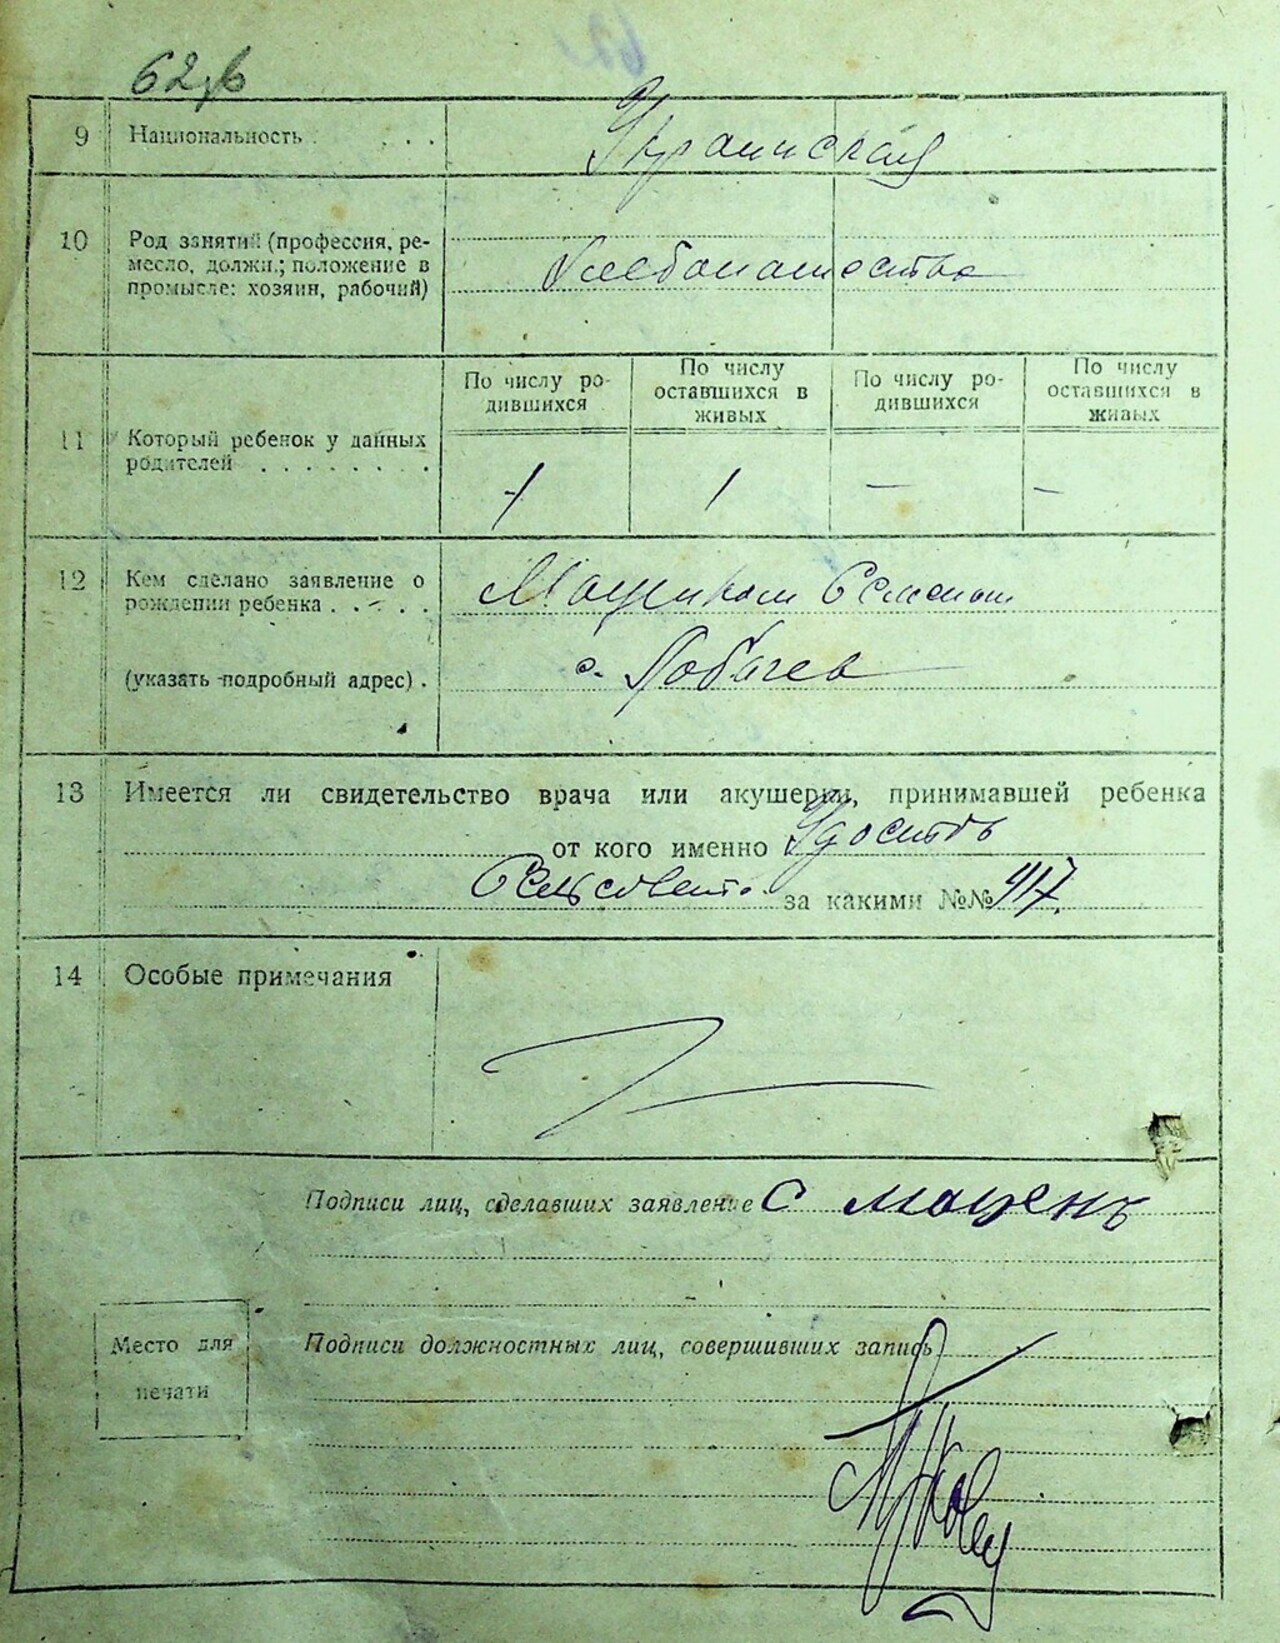 62
9 Национальность . . . . Украинская
10 Род занятий (профессия, ре-
месло, должн.; положение в
промысле: хозяин, рабочий)
Хлебопашество
По числу ро-
дившихся
По числу
оставшихся в
живых
По числу ро-
дившихся
По числу
оставшихся в
живых
11 Который ребенок у данных
родителей . . . . . . . .
1 1 — —
12 Кем сделано заявление о
рождении ребенка . . . . .
Семеном
(указать подробный адрес) .
с. Лобачев
13 Имеется ли свидетельство врача или акушерки, принимавшей ребенка
от кого именно Удостов
Сельсовета за какими №№ 417.
14 Особые примечания
Подписи лиц, сделавших заявление С Моцень
Место для
печати
Подписи должностных лиц, совершивших запись